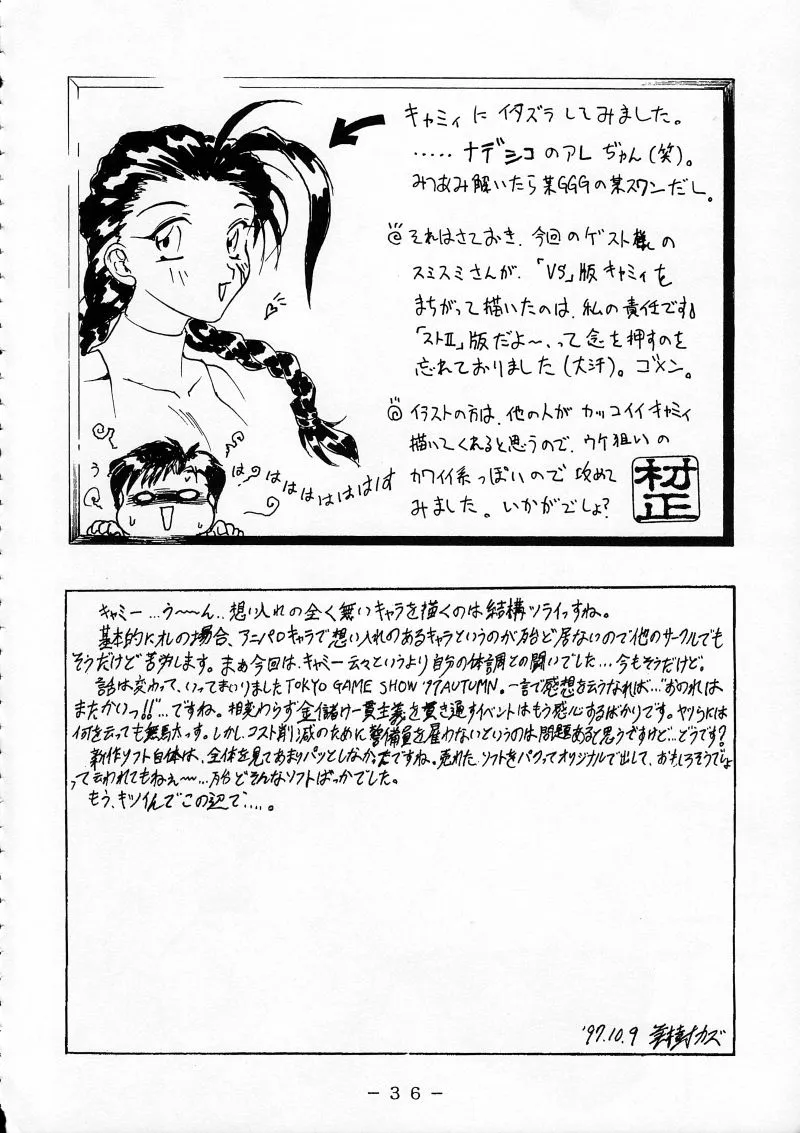 キャミィに イタズラ してみました。
・・・・・ ナデシコのアレ ぢゃん(笑)。
みつあみ解いたら某GGGの某スワンだし。
それはさておき、今回のゲスト様の
スミスミさんが、「VS」版キャミィを
まちがって描いたのは、私の責任です。
「ストⅡ」版だよ〜、って念を押すのを
忘れておりました(大汗)。ゴメン。
イラストの方は、他の人が カッコイイキャミィ
描いてくれると思うので、ウケ狙いの
カワイイ系っぽいので 攻めて
みました。いかがでしょ?
う
はっはははははは
村正
キャミー…う〜〜ん…想い入れの全く無いキャラを描くのは結構ツライっすね。
基本的にオレの場合、アニパロキャラで想い入れのあるキャラというのが殆ど居ないので他のサークルでも
そうだけど苦労します。まぁ今回は、キャミー云々というより自分の体調との闘いでした…今もそうだけど。
話は変わって、いってまいりましたTOKYO GAME SHOW '97 AUTUMN。一言で感想を云うなれば…"おのれは
またかいっ!!"…ですね。相変わらず金儲け一貫主義を貫き通すイベントはもう感心するばかりです。ヤツらには
何を云っても無駄っす。しかし、コスト削減のために警備員を雇わないというのは問題あると思うですけど…どうです?
新作ソフト自体は、全体を見てあまりパッとしなかったですね。売れたソフトをパクってオリジナルで出して、おもしろそうでしょ
って云われてもねぇ〜〜…殆どそんなソフトばっかでした。
もう、キツイんでこの辺で…。
'97.10.9 カズ
- 3 6 -